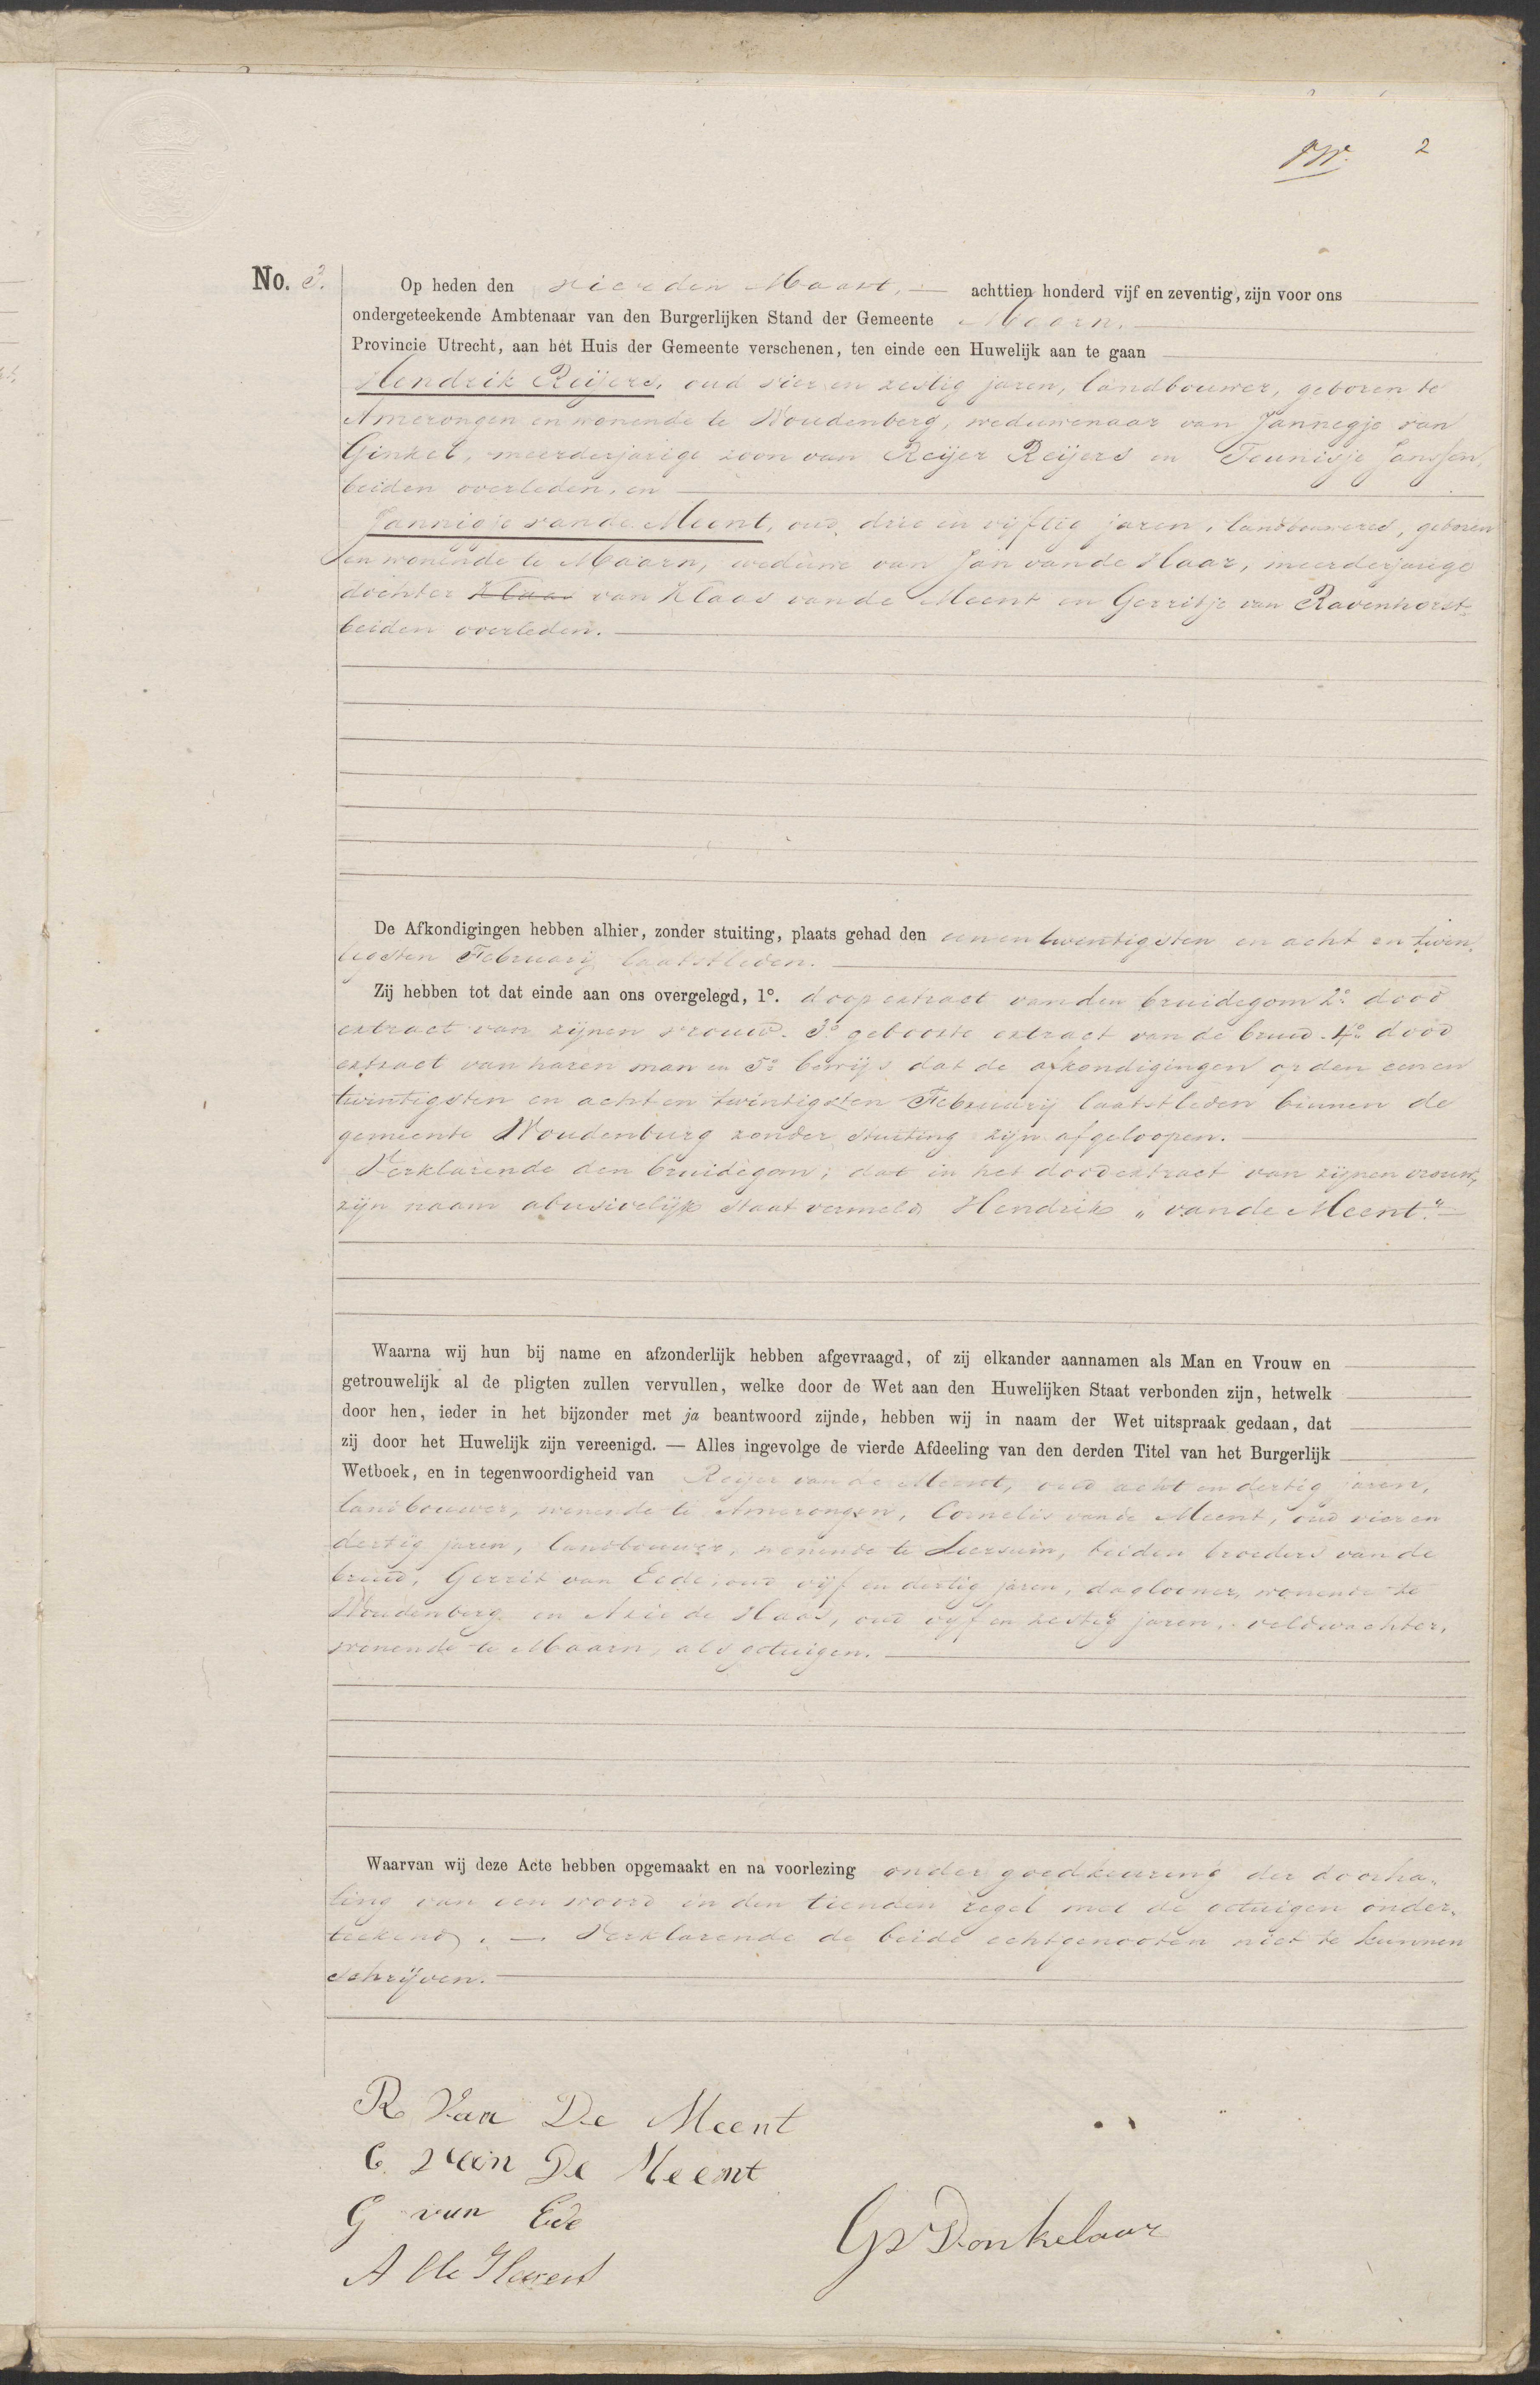 2
No. 3.
Op heden den vierden Maart, achttien honderd vijf en zeventig, zijn voor ons
ondergeteekende Ambtenaar van den Burgerlijken Stand der Gemeente Maarn,
Provincie Utrecht, aan het Huis der Gemeente verschenen, ten einde een Huwelijk aan te gaan
Hendrik Reijers, oud vier en zestig jaren, landbouwer, geboren te
Amerongen en wonende te Woudenberg, weduwenaar van Jannegje van
Ginkel, meerderjarige zoon van Reijer Reijers en Teunisje Janssen,
beiden overleden, en
Jannigje van de Meent, oud drie en vijftig jaren, landbouweres, geboren
en wonende te Maarn, weduwe van Jan van de Haar, meerderjarige
dochter Klaas van Klaas van de Meent en Gerritje van Ravenhorst
beiden overleden.
De Afkondigingen hebben alhier, zonder stuiting, plaats gehad den eenentwintigsten en acht en twin
tigsten Februarij laatstleden.
Zij hebben tot dat einde aan ons overgelegd, 1°. doop extract van den bruidegom 2° dood
extract van zijnen vrouw. 3° geboorte extract van de bruid. 4° dood
extract van haren man en 5° bewijs dat de afkondigingen op den een en
twintigsten en acht en twintigsten Februarij laatstleden binnen de
gemeente Woudenburg zonder stuiting zijn afgeloopen.
Verklarende den bruidegom; dat in het doodextract van zijnen vrouw,
zijn naam abusivelijk staat vermeld Hendrik „van de Meent."
Waarna wij hun bij name en afzonderlijk hebben afgevraagd, of zij elkander aannamen als Man en Vrouw en
getrouwelijk al de pligten zullen vervullen, welke door de Wet aan den Huwelijken Staat verbonden zijn, hetwelk
door hen, ieder in het bijzonder met ja beantwoord zijnde, hebben wij in naam der Wet uitspraak gedaan, dat
zij door het Huwelijk zijn vereenigd. — Alles ingevolge de vierde Afdeeling van den derden Titel van het Burgerlijk
Wetboek, en in tegenwoordigheid van Reijer van de Meent, oud acht en dertig jaren,
landbouwer, wonende te Amerongen, Cornelis van de Meent, oud vier en
dertig jaren, landbouwer, wonende te Leersum, beiden broeders van de
bruid, Gerrit van Eede, oud vijf en dertig jaren, daglooner, wonende te
Woudenberg en Arie de Haas, oud vijf en zestig jaren, veldwachter,
wonende te Maarn, als getuigen.
Waarvan wij deze Acte hebben opgemaakt en na voorlezing onder goedkeuring der doorha„
ling van een woord in den tienden regel met de getuigen onder„
teekend. — Verklarende de beide echtgenooten niet te kunnen
schrijven.
R Van De Meent
C. van De Meent
G van Ede
A de
GvDonkelaar